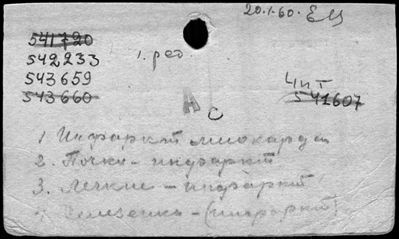 20.1.60. Ец
541720
542233
543659
543660
1. рео
Чит
541607
А
С
1 Инфаркт миокарда
2. Почки - инфаркт
3. Легкие - инфаркт
4. Селезенка - (инфаркт)